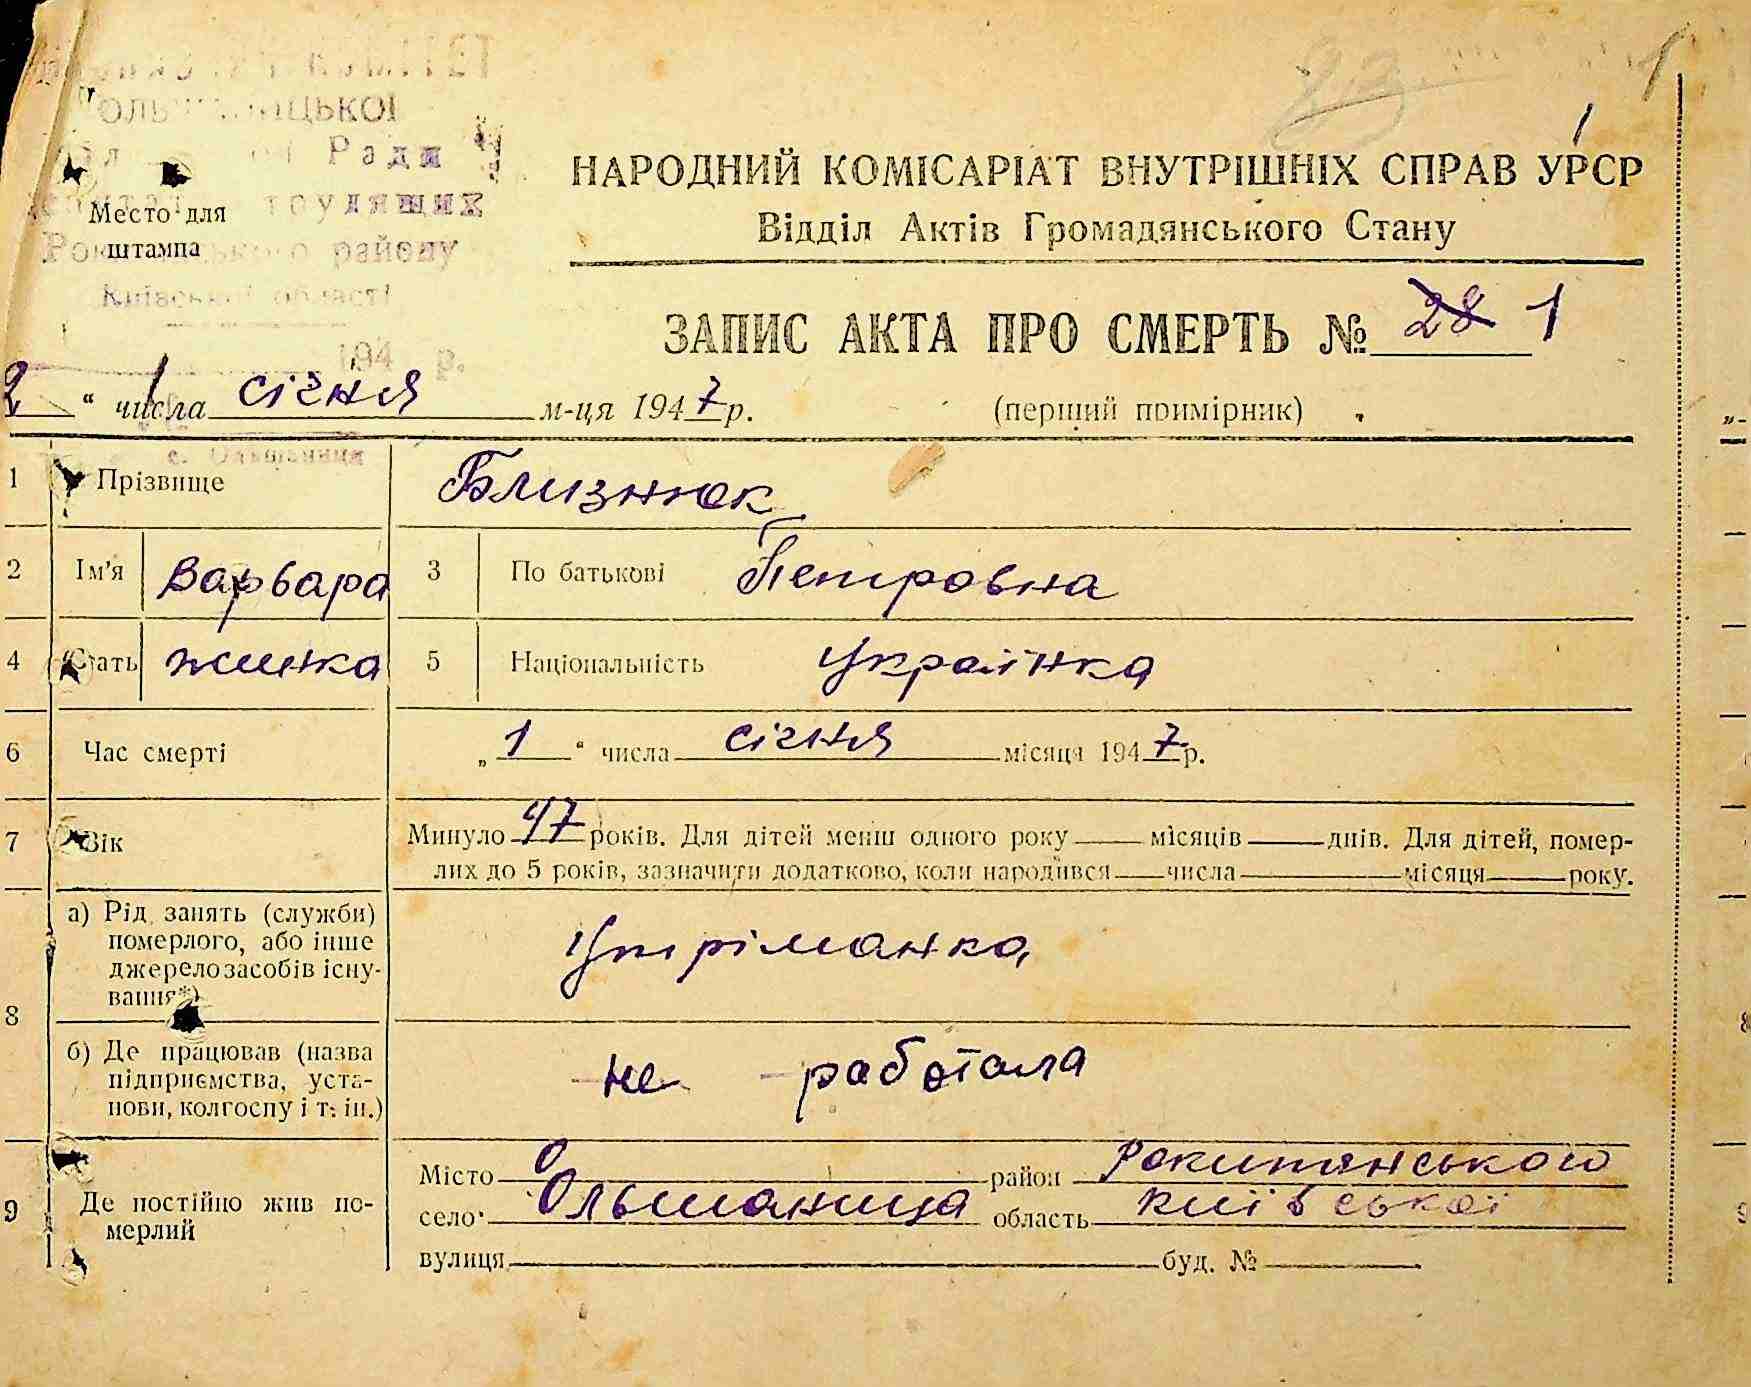 23
1
1
ЦЬКОЇ
Ради
трудящих
Место для
штампа
району
Київської області
194 р.
НАРОДНИЙ КОМІСАРІАТ ВНУТРІШНІХ СПРАВ УРСР
Відділ Актів Громадянського Стану
ЗАПИС АКТА ПРО СМЕРТЬ № 28 1
2 “ числа січня м-ця 1947 р. (перший примірник)
1 Прізвище Близнюк
2 Ім'я Варвара 3 По батькові Петровна
4 Стать жинка 5 Національність Українка
6 Час смерті „ 1 “ числа січня місяця 1947 р.
7 Вік Минуло 47 років. Для дітей менш одного року місяців днів. Для дітей, помер-
лих до 5 років, зазначити додатково, коли народився числа місяця року.
8 а) Рід занять (служби)
померлого, або інше
джерело засобів існу-
вання*)
Утріманка
б) Де працював (назва
підприємства, уста-
нови, колгоспу і т. ін.)
не работала
9 Де постійно жив по-
мерлий
Місто район Рокитянського
село Ольшаница область Київської
вулиця буд. №